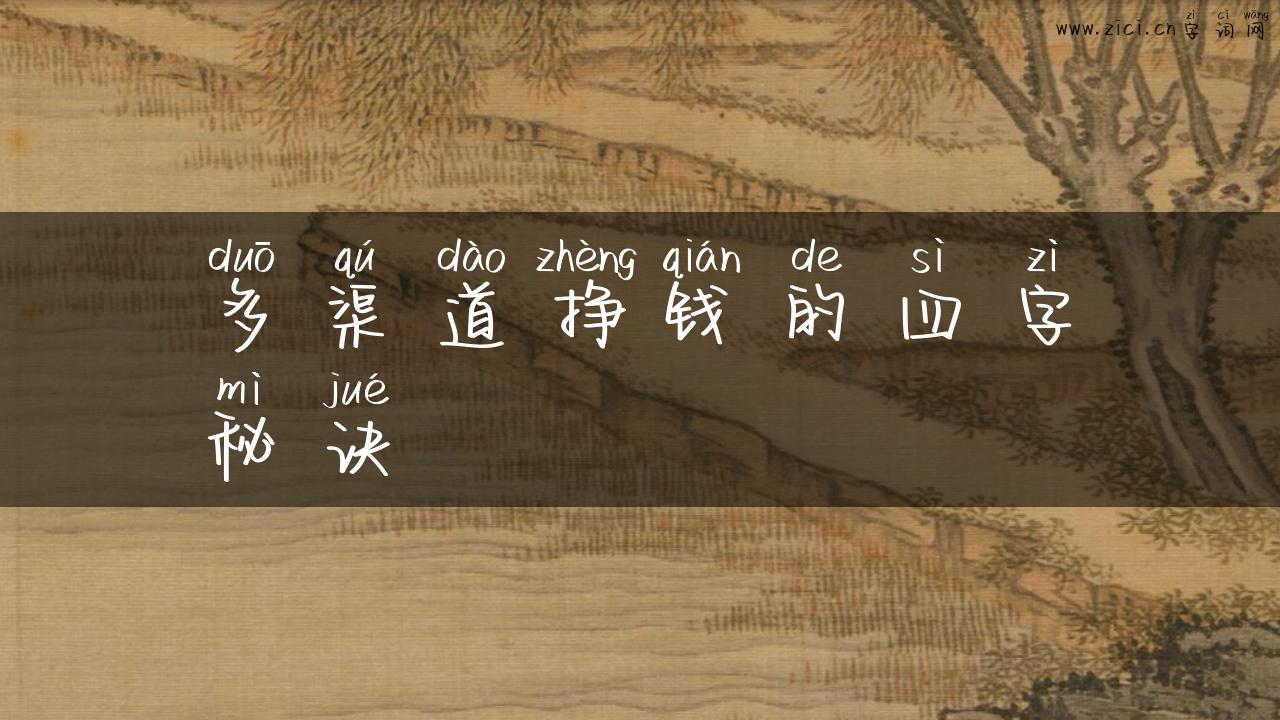 zì cí wǎng
www.zici.cn字词网
duō qú dào zhèng qián de sì zì
多渠道挣钱的四字
mì jué
秘诀